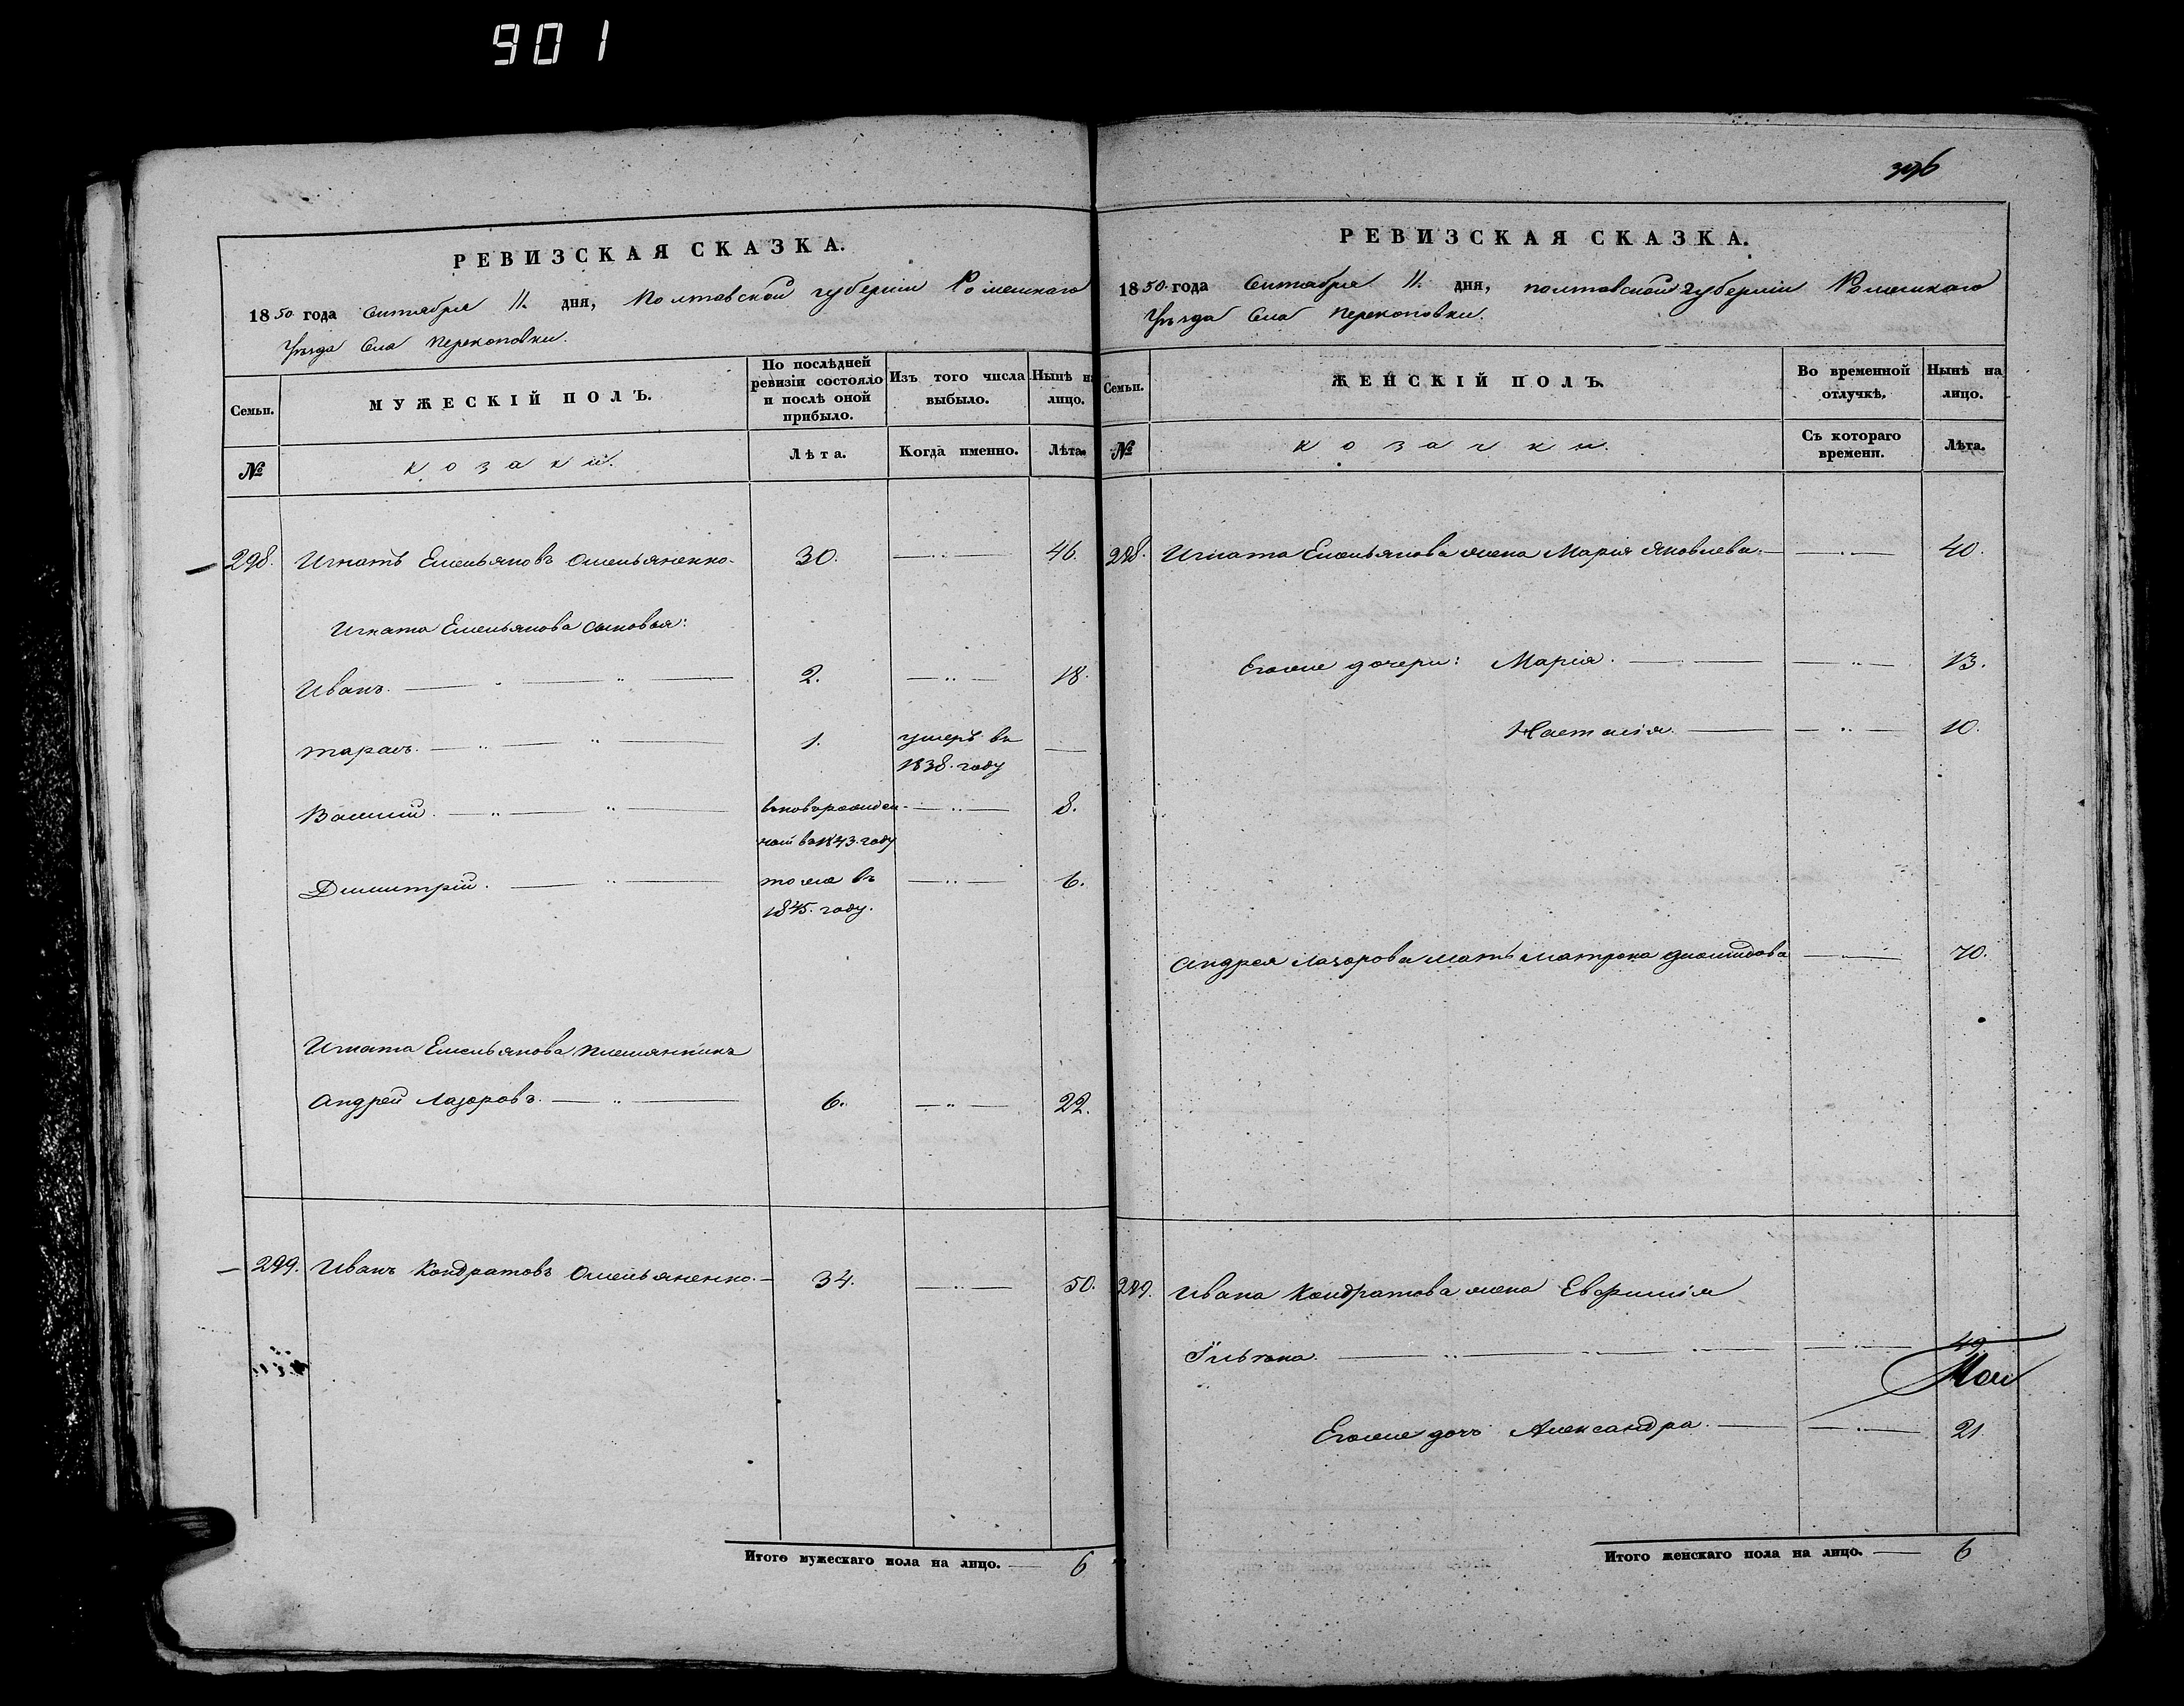 901
396
РЕВИЗСКАЯ СКАЗКА.
1850 года Сентября 11. дня, Полтавской губерніи Роменскаго
Уѣзда Села Перекоповки.
Семьи.
МУЖЕСКІЙ ПОЛЪ.
По послѣдней ревизіи состояло и послѣ оной прибыло.
Изъ того числа выбыло.
Нынѣ на лицо.
№
козаки.
Лѣта.
Когда именно.
Лѣта.
298. Игнатъ Емельяновъ Омельяненко. 30. 46.
Игната Емельянова сыновья:
Иванъ. 2. 18.
Тарасъ. 1. умеръ въ 1838. году
Василий. вновьрожденной въ 1843. году 8.
Димитрій. тоже въ 1845. году. 6.
Игната Емельянова племянникъ
Андрей Лазоровъ. 6. 22.
299. Иванъ Кондратовъ Омельяненко. 34. 50.
Итого мужескаго пола на лицо. 6
РЕВИЗСКАЯ СКАЗКА.
1850 года Сентября 11. дня, Полтавской губерніи Роменскаго
Уѣзда Села Перекоповки.
Семьи.
ЖЕНСКІЙ ПОЛЪ.
Во временной отлучкѣ.
Нынѣ на лицо.
№
козачки.
Съ котораго времени.
Лѣта.
298. Игната Емельянова жена Марія Яковлева. 40.
Егоже дочери: Марія. 13.
Наталія. 10.
Андрея Лазорова мать Матрона Диомидова 70.
299. Ивана Кондратова жена Евфимія
49
Егоже дочь Александра. 21
Итого женскаго пола на лицо. 6